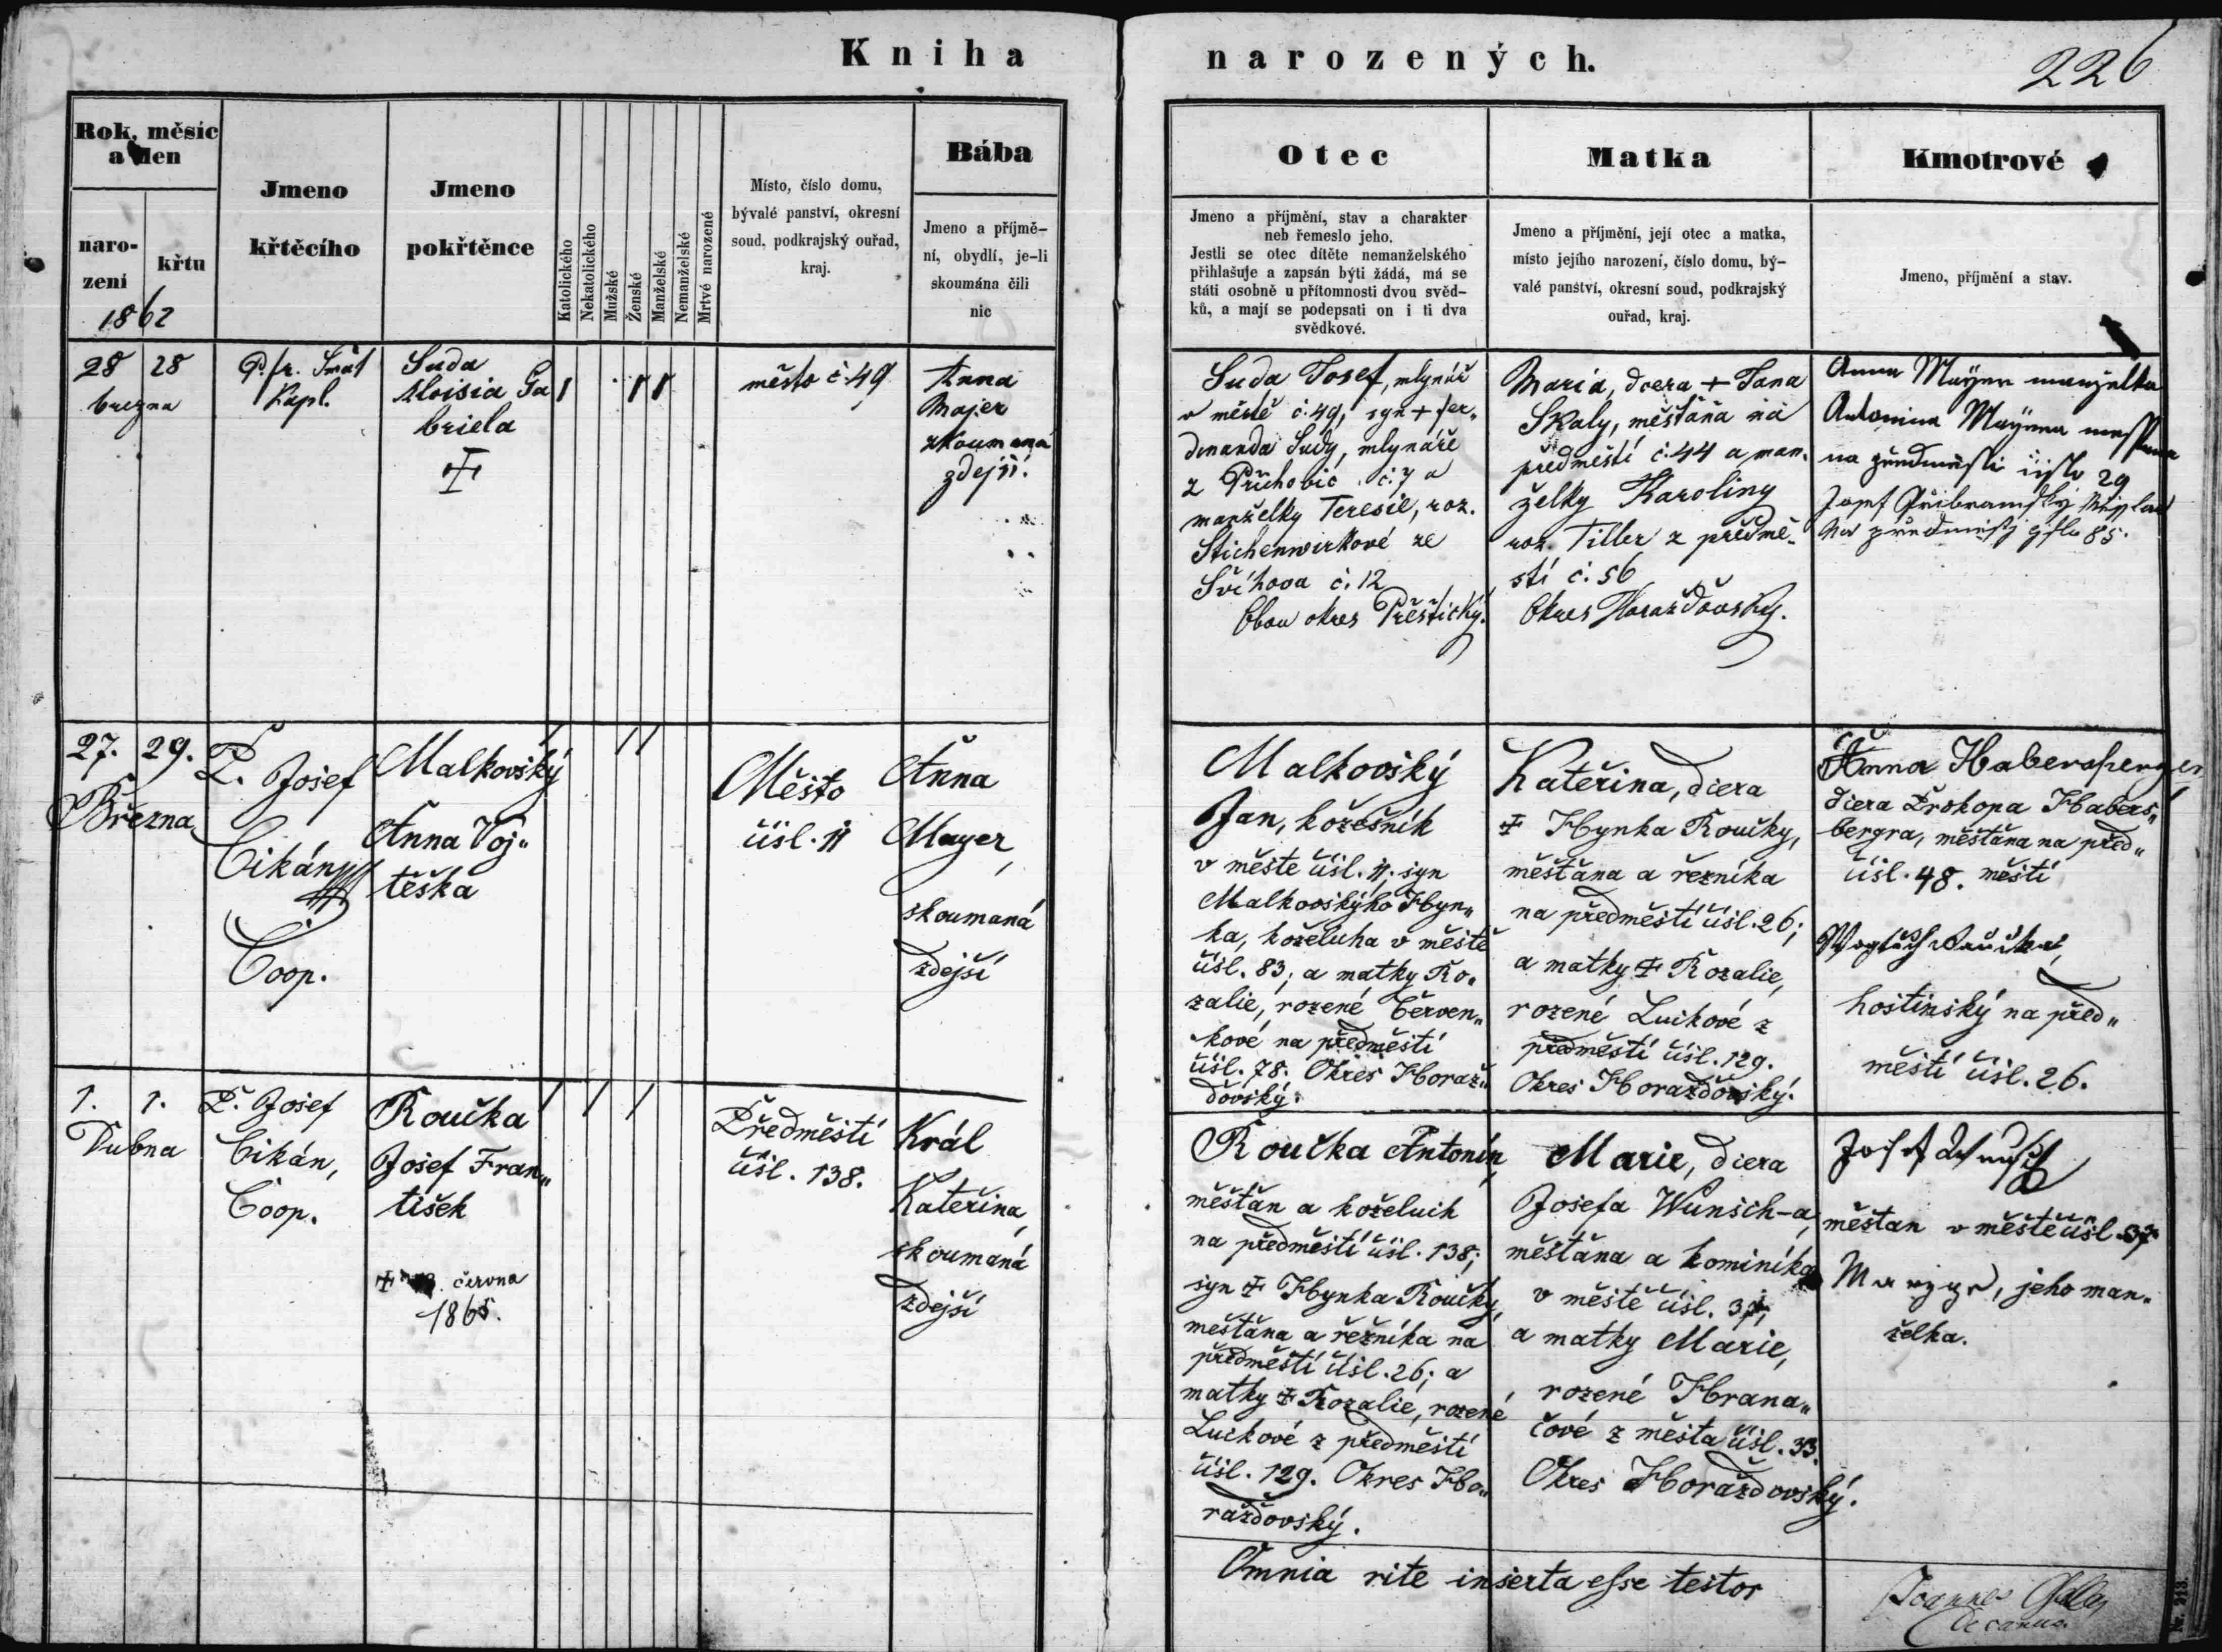 Kniha narozených.
226
Rok, měsíc
a den
naro-
zení
křtu
1862
Jmeno
křtěcího
Jmeno
pokřtěnce
Katolického
Nekatolického
Mužské
Ženské
Manželské
Nemanželské
Mrtvé narozené
Místo, číslo domu,
bývalé panství, okresní
soud, podkrajský ouřad,
kraj.
Bába
Jmeno a příjmě-
ní, obydlí, je-li
skoumána čili
nic
Otec
Jmeno a příjmění, stav a charakter
neb řemeslo jeho.
Jestli se otec dítěte nemanželského
přihlašuje a zapsán býti žádá, má se
státi osobně u přítomnosti dvou svěd-
ků, a mají se podepsati on i ti dva
svědkové.
Matka
Jmeno a příjmění, její otec a matka,
místo jejího narození, číslo domu, bý-
valé panství, okresní soud, podkrajský
ouřad, kraj.
Kmotrové
Jmeno, příjmění a stav.
28 28
března
P. fr.
Kapl.
Suda
Aloisia Ga
briela
město č. 49
Anna
Majer
zkoumaná
zdejší.
Suda Josef, mlynář
v městě č. 49, syn + fer„
dinanda Sudy, mlynáře
z Příchovic č. 7 a
manželky Teresie, roz.
Stichenwirkové ze
Švihova č. 12
Obou okres Přeštický.
Maria, dcera + Jana
Skaly, měšťana na
předměstí č. 44 a man-
želky Karoliny
roz. Tiller z předmě-
stí č. 56
Okres Horažďovský.
Anna Mayer manželka
Antonina Mayera
na předměsti čislo 29
Josef Přibramský
na předměsti čislo 85.
27. 29.
Března
P. Josef
Cikán
Coop.
Malkovský
Anna Voj„
těška
Město
čísl. 11
Anna
Mayer,
skoumaná
zdejší
Malkovský
Jan, kožešník
v městě čísl. 11. syn
Malkovskýho Hyn„
ka, koželuha v městě
čísl. 83, a matky Ro„
zalie, rozené Červen„
kové na předměstí
čísl. 78. Okres Horaž„
ďovský.
Kateřina, dcera
+ Hynka Roučky,
měšťana a řezníka
na předměstí čísl. 26;
a matky + Rozalie,
rozené Luckové z
předměstí čísl. 129.
Okres Horažďovský.
Anna Habersperger
dcera Prokopa Habers„
bergra, měšťana na před„
čísl. 48. městí
hostinský na před„
městí čísl. 26.
1. 1.
Dubna
P. Josef
Cikán,
Coop.
Roučka
Josef Fran„
tišek
+ června
1865.
Předměstí
čísl. 138.
Král
Kateřina,
skoumaná
zdejší
Roučka Antonín,
měšťan a koželuch
na předměstí čísl. 138;
syn + Hynka Roučky,
měšťana a řezníka na
předměstí čísl. 26; a
matky + Rozalie, rozené
Luckové z předměstí
čísl. 129. Okres Ho„
ražďovský.
Marie, dcera
Josefa Wünsch-a,
měšťana a kominíka
v městě čísl. 37,
a matky Marie,
rozené Hrana„
čové z města čísl. 33.
Okres Horažďovský.
Josef
měšťan v městě čísl. 37
jeho man„
želka.
Omnia rite inserta esse testor
Joannes
Decanus.
Nr. 213.